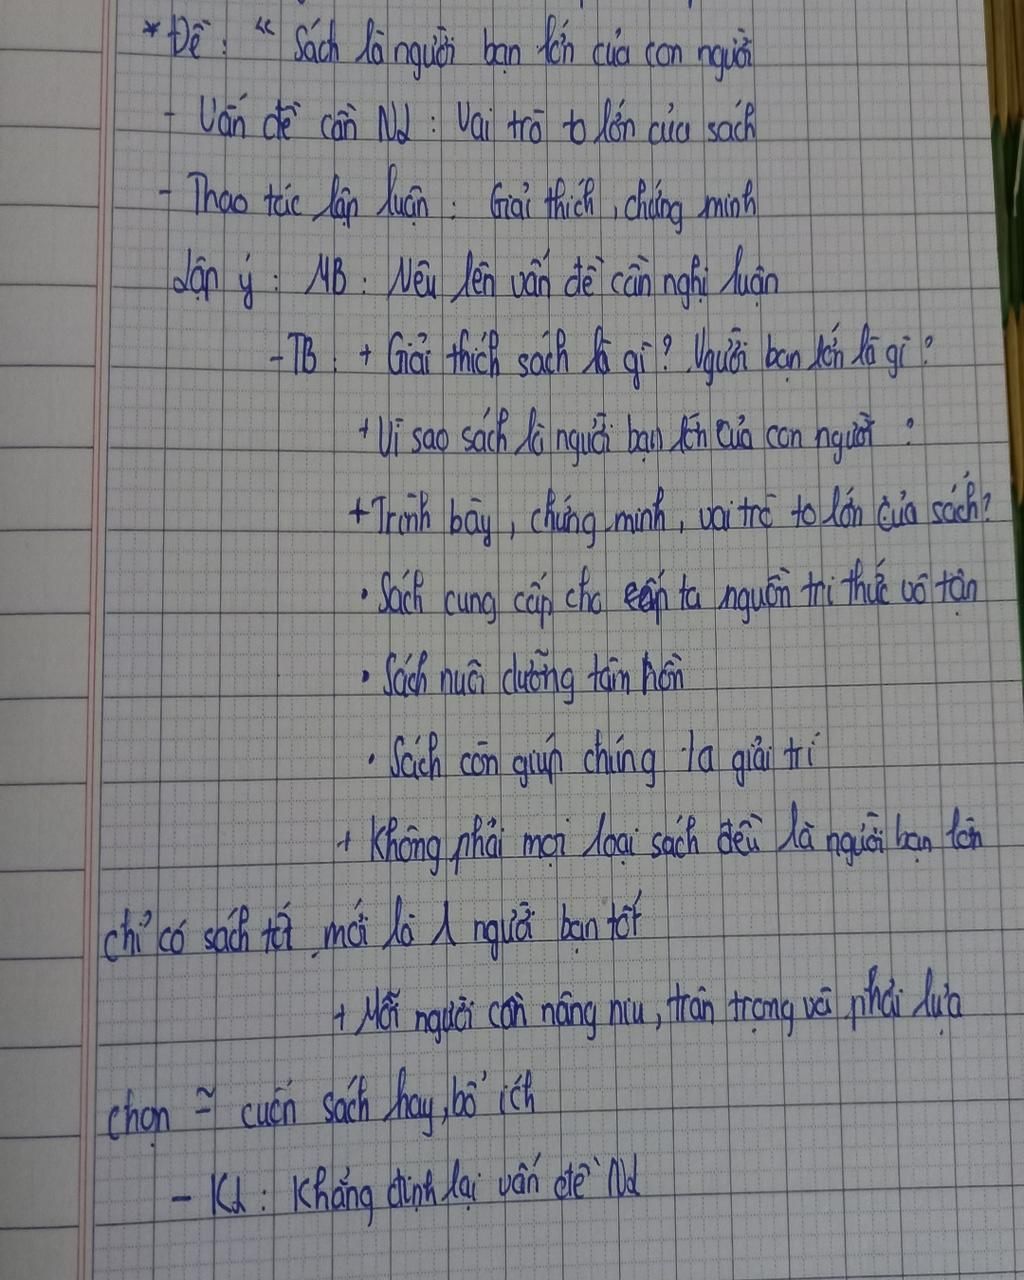 * Đề : “ Sách là người bạn lớn của con người
- Vấn đề cần NL : Vai trò to lớn của sách
- Thao tác lập luận : Giải thích, chứng minh
dàn ý : MB : Nêu lên vấn đề cần nghị luận
- TB : + Giải thích sách là gì ? Người bạn lớn là gì ?
+ Vì sao sách là người bạn lớn của con người :
+ Trình bày, chứng minh, vai trò to lớn của sách?
• Sách cung cấp cho ta nguồn tri thức vô tận
• Sách nuôi dưỡng tâm hồn
• Sách còn giúp chúng ta giải trí
+ Không phải mọi loại sách đều là người bạn lớn
chỉ có sách tốt mới là 1 người bạn tốt
+ Mỗi người cần nâng niu, trân trọng và phải lựa
chọn ~ cuốn sách hay, bổ ích
- KL : Khẳng định lại vấn đề NL